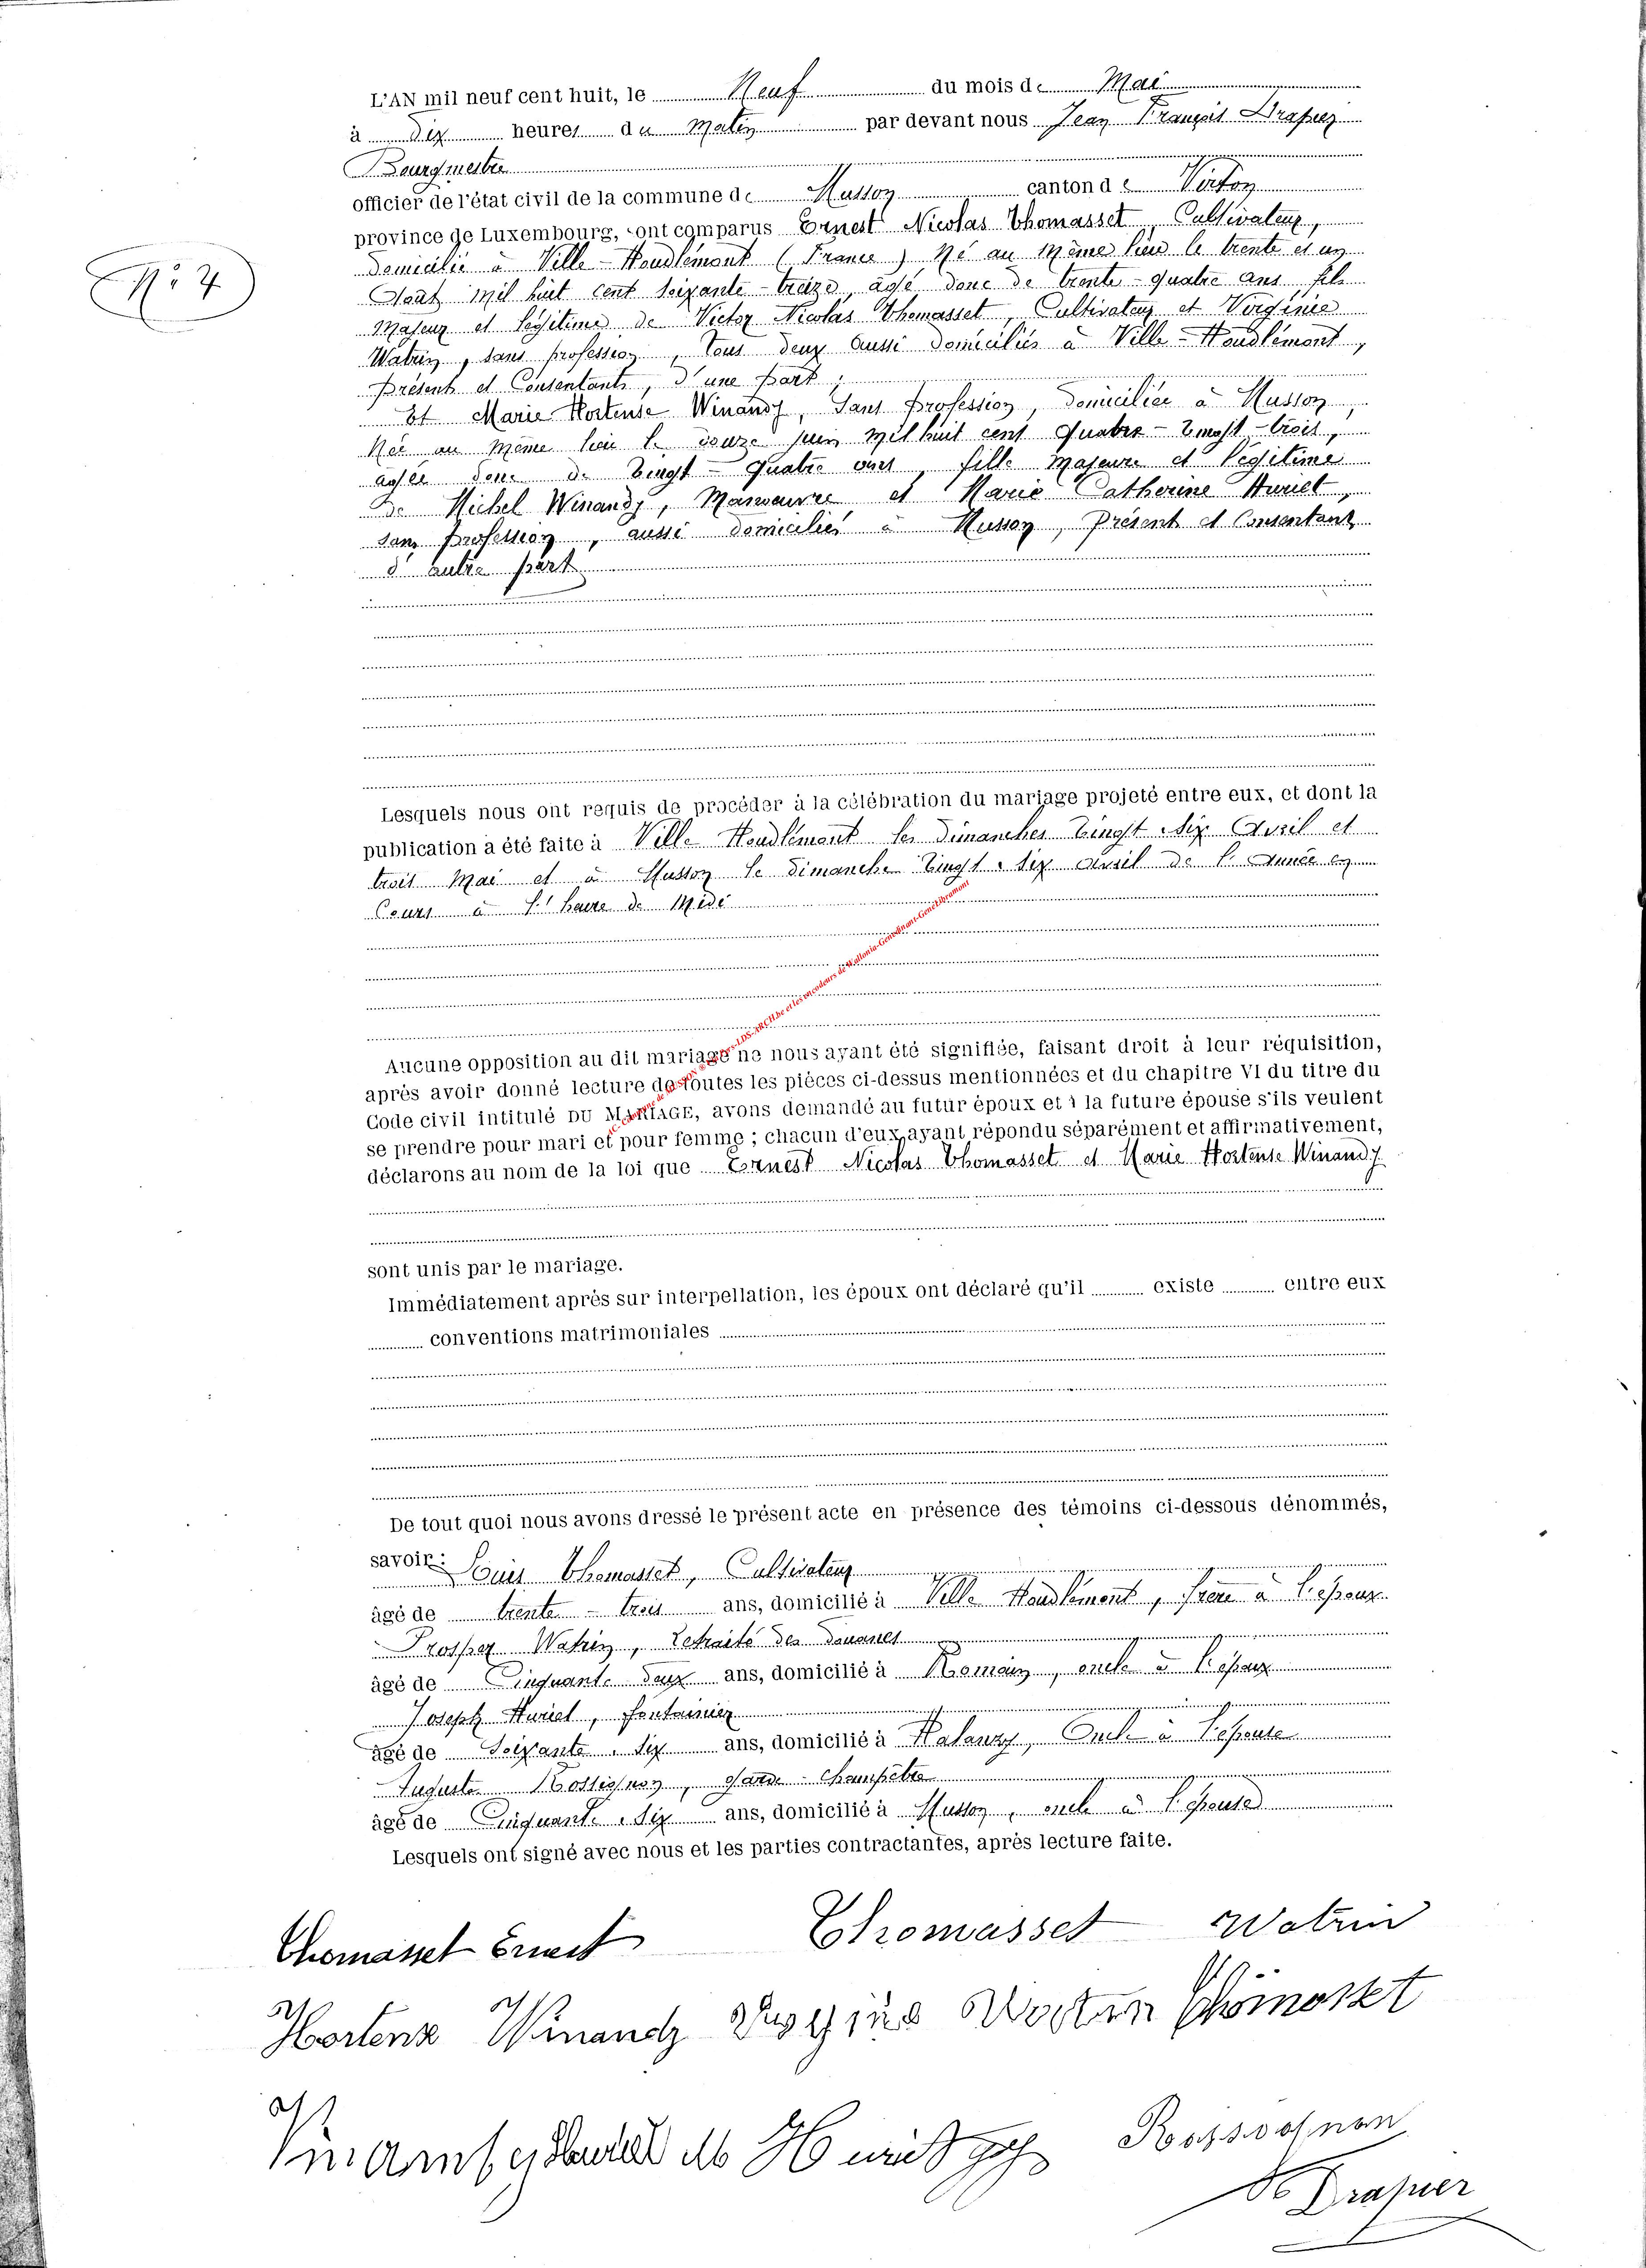 N° 4
L'AN mil neuf cent huit, le Neuf du mois de Mai
à Dix heures du Matin par devant nous Jean François Drapier
Bourgmestre
officier de l'état civil de la commune de Musson canton de Virton
province de Luxembourg, ont comparus Ernest Nicolas Thomasset, Cultivateur,
Domicilié à Ville-Houdlémont (France) Né au Même lieu le trente et un
Août Mil huit cent soixante-treize, âgé donc de trente-quatre ans fils
Majeur et légitime de Victor Nicolas Thomasset, Cultivateur et Virginie
Watrin, sans profession, tous deux aussi domiciliés à Ville-Houdlémont,
Présents et Consentants, d'une part;
Et Marie Hortense Winandy, Sans Profession, Domiciliée à Musson,
Née au Même lieu le douze juin Mil huit cent Quatre-Vingt-trois,
âgée donc de Vingt-Quatre ans, fille Majeure et légitime
De Michel Winandy, Manœuvre et Marie Catherine Huriet,
sans profession, aussi domiciliés à Musson, Présent et Consentant
d'autre part
Lesquels nous ont requis de procéder à la célébration du mariage projeté entre eux, et dont la
publication a été faite à Ville Houdlémont les Dimanches Vingt six Avril et
trois Mai et à Musson le Dimanche Vingt six Avril de l'Année en
Cours à l'heure de Midi
Aucune opposition au dit mariage ne nous ayant été signifiée, faisant droit à leur réquisition,
après avoir donné lecture de toutes les pièces ci-dessus mentionnées et du chapitre VI du titre du
Code civil intitulé DU MARIAGE, avons demandé au futur époux et à la future épouse s'ils veulent
se prendre pour mari et pour femme ; chacun d'eux ayant répondu séparément et affirmativement,
déclarons au nom de la loi que Ernest Nicolas Thomasset et Marie Hortense Winandy
sont unis par le mariage.
Immédiatement après sur interpellation, les époux ont déclaré qu'il existe entre eux
conventions matrimoniales
De tout quoi nous avons dressé le présent acte en présence des témoins ci-dessous dénommés,
savoir: Louis Thomasset, Cultivateur
âgé de trente-trois ans, domicilié à Ville Houdlémont, frère à l'époux
Prosper Watrin, Retraité des Douanes
âgé de Cinquante deux ans, domicilié à Romain, oncle à l'époux
Joseph Huriet, fontainier
âgé de Soixante six ans, domicilié à Halanzy, Oncle à l'épouse
Auguste Rossignon, Garde-Champêtre
âgé de Cinquante six ans, domicilié à Musson, oncle à l'épouse
Lesquels ont signé avec nous et les parties contractantes, après lecture faite.
Thomasset Ernest Thomasset Watrin
Hortense Winandy Virginie Watrin Thomasset
Rossignon
Drapier